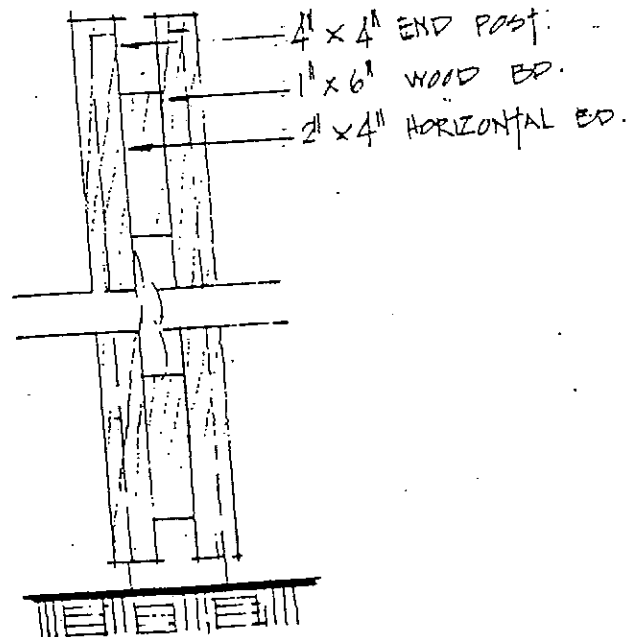 4" x 4" END POST.
1" x 6" WOOD BD.
2" x 4" HORIZONTAL BD.